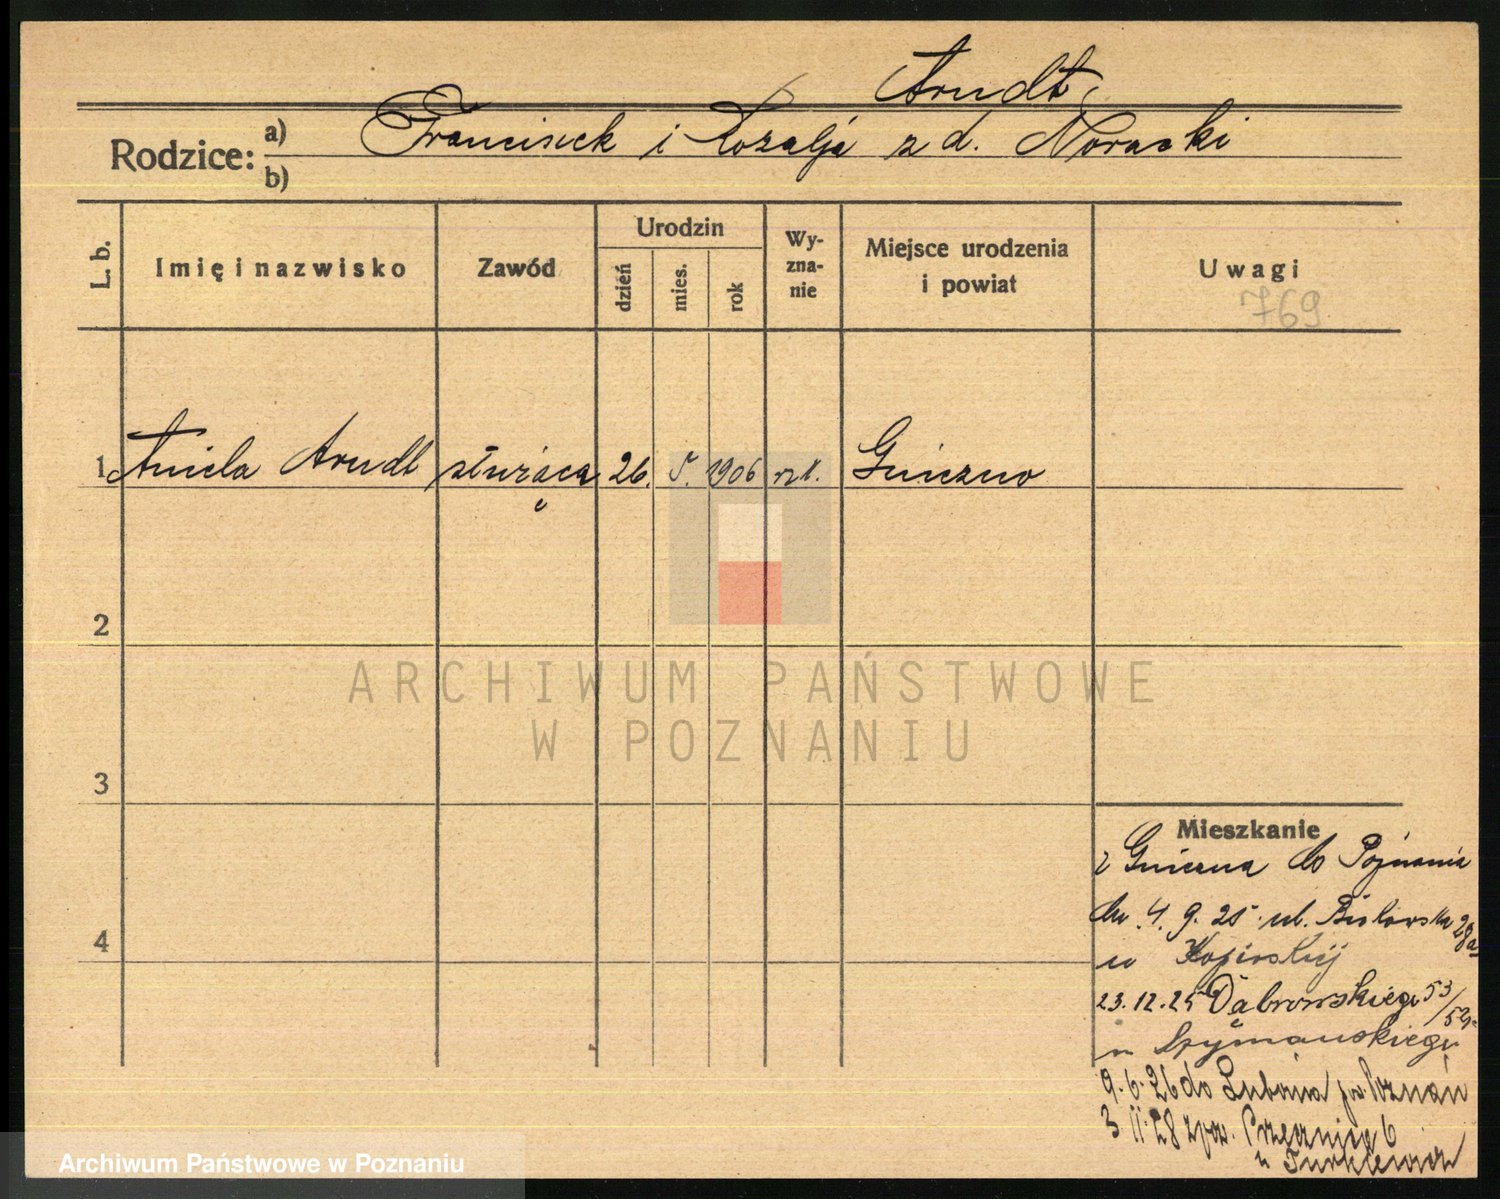 Arndt
Rodzice: a) Franciszek i Rozalja z d. Noracki
b)
L. b.
Imię i nazwisko
Zawód
Urodzin
dzień
mies.
rok
Wy-
zna-
nie
Miejsce urodzenia
i powiat
Uwagi
769
1 Aniela Arndt służąca 26. 5. 1906 rz k. Gniezno
2
3
4
ARCHIWUM PAŃSTWOWE
W POZNANIU
Mieszkanie
z Gniezna do Poznania
dn 4. 9. 25 ul.
u
23.12.25 Dąbrowskiego 53/
u Szymańskiego
9.6.26 do Lubonia pow. Poznań
3 II 28 6
u
Archiwum Państwowe w Poznaniu